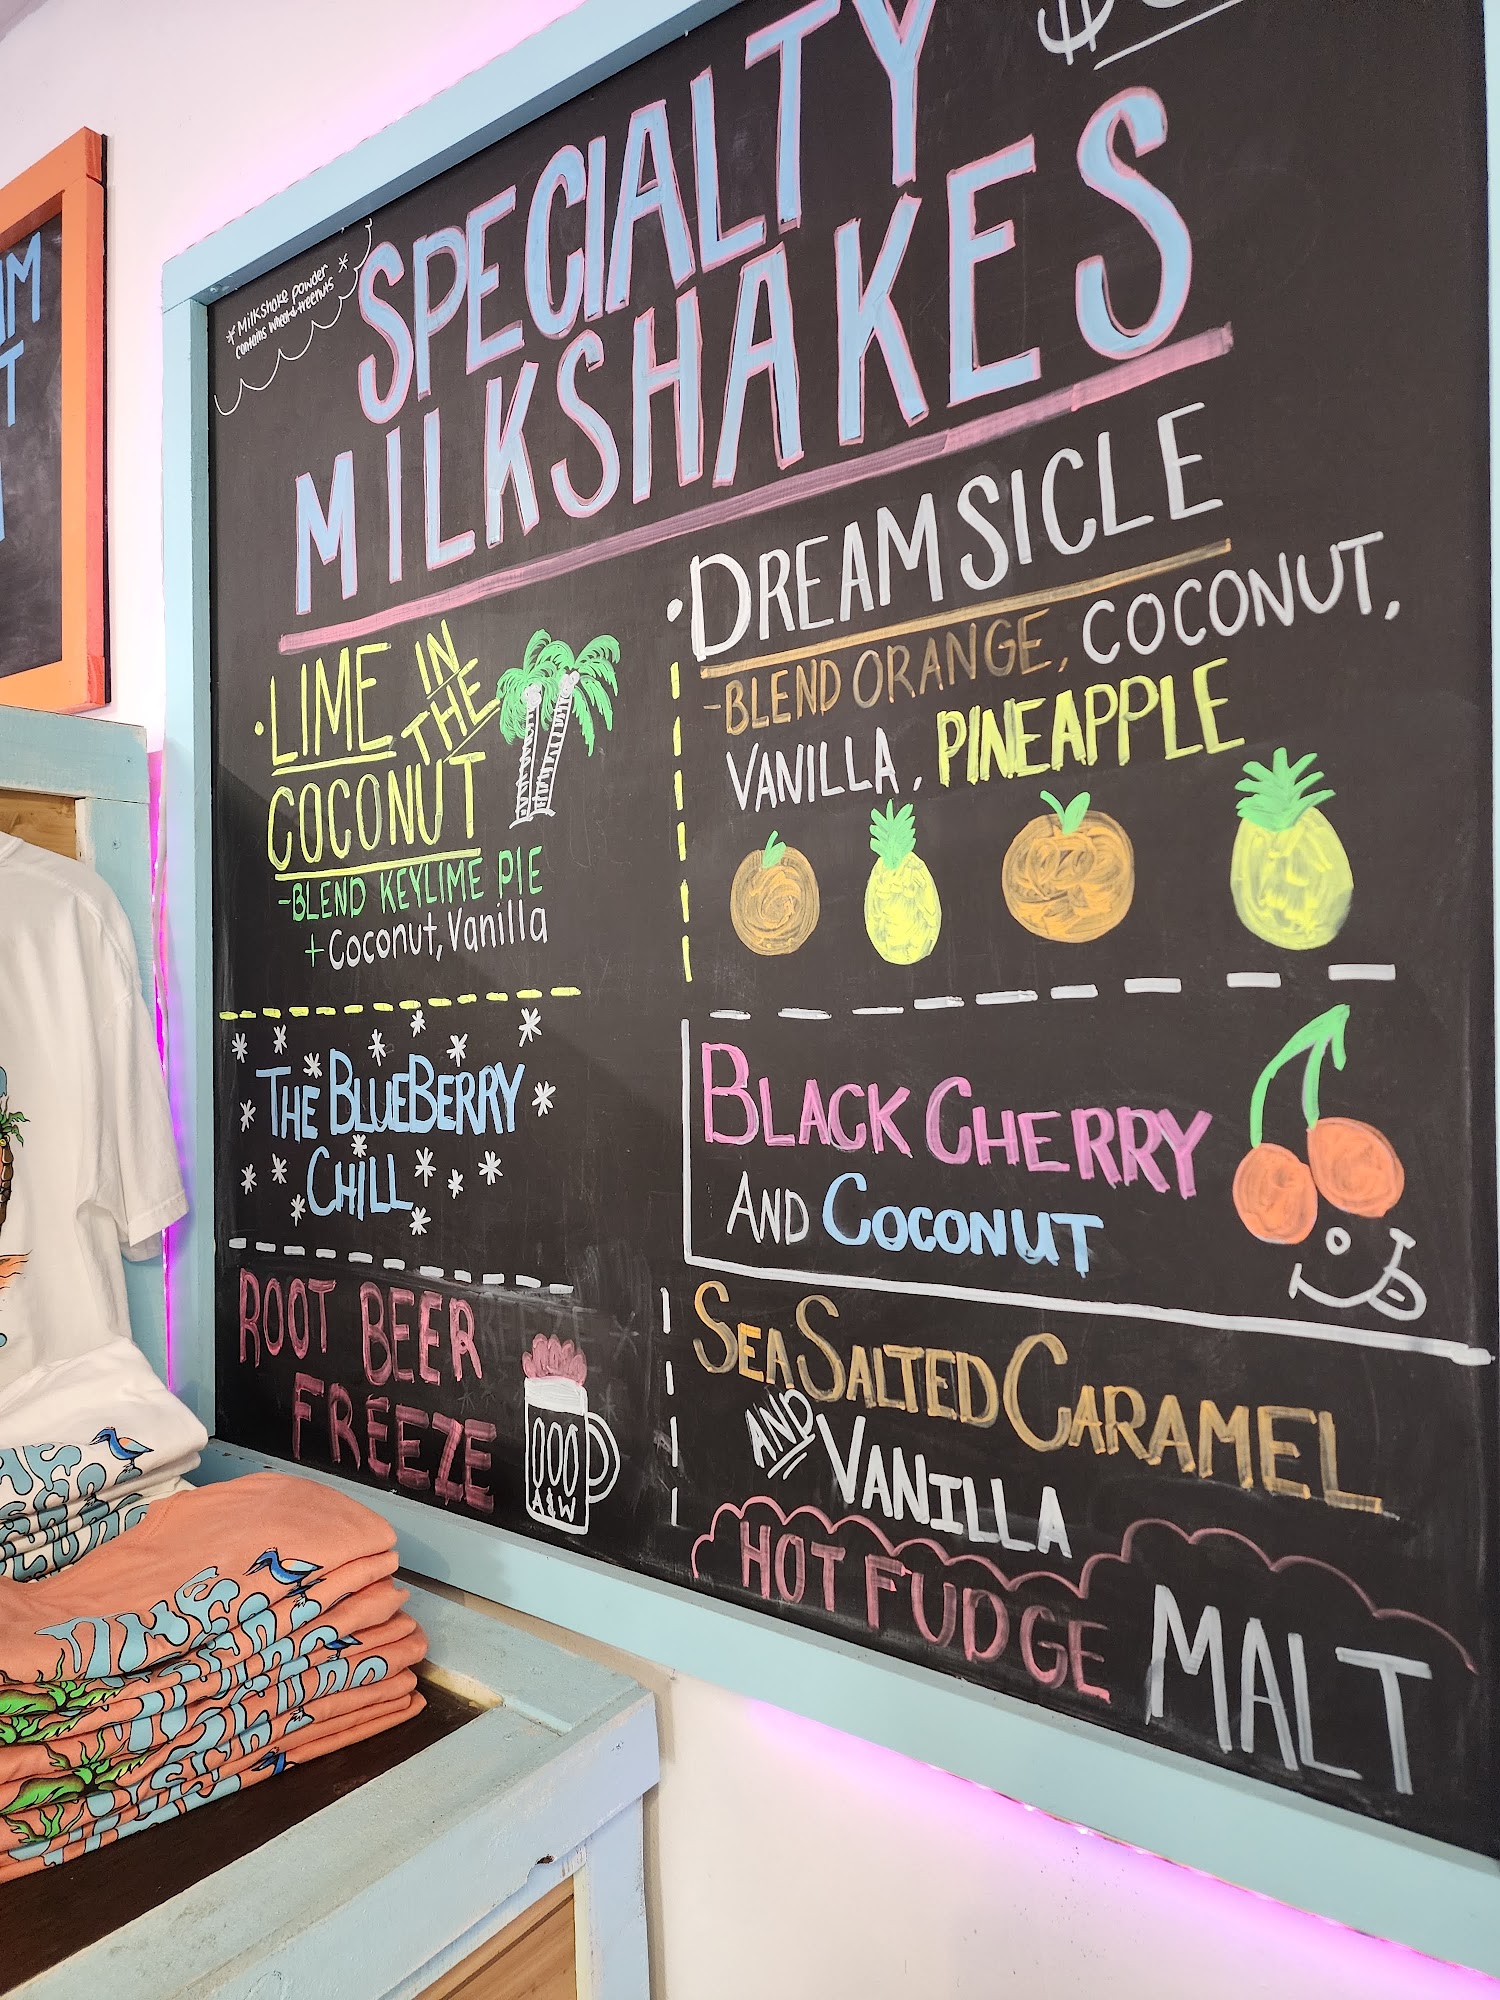 SPECIALTY
MILKSHAKES
*Milkshake powder *
contains wheat & treenuts
• LIME IN
THE
COCONUT
-BLEND KEYLIME PIE
+ Coconut, Vanilla
THE BLUEBERRY
CHILL
ROOT BEER
FREEZE
A&W
• DREAMSICLE
-BLEND ORANGE, COCONUT,
VANILLA, PINEAPPLE
BLACK CHERRY
AND COCONUT
SEA SALTED CARAMEL
AND VANILLA
HOT FUDGE MALT